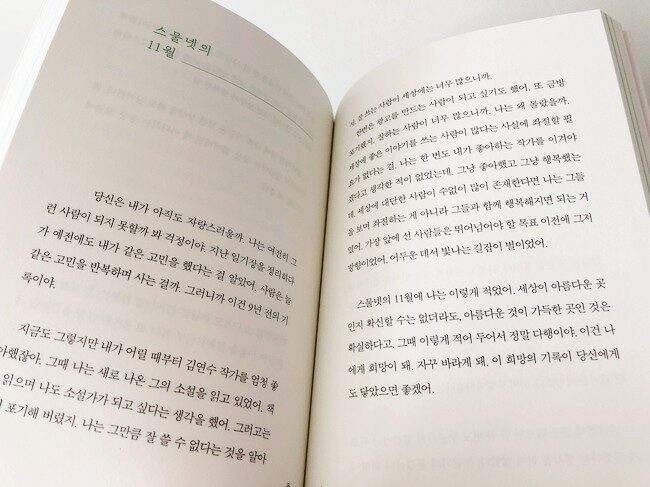 스물넷의
11월
당신은 내가 아직도 자랑스러울까. 나는 여전히 그
런 사람이 되지 못할까 봐 걱정이야. 지난 일기장을 정리하다
가 예전에도 내가 같은 고민을 했다는 걸 알았어. 사람은 늘
같은 고민을 반복하며 사는 걸까. 그러니까 이건 9년 전의 기
록이야.
지금도 그렇지만 내가 어릴 때부터 김연수 작가를 엄청 좋
아했잖아. 그때 나는 새로 나온 그의 소설을 읽고 있었어. 책
읽으며 나도 소설가가 되고 싶다는 생각을 했어. 그러고는
포기해 버렸지. 나는 그만큼 잘 쓸 수 없다는 것을 알아
서. 잘 쓰는 사람이 세상에는 너무 많으니까.
한번은 광고를 만드는 사람이 되고 싶기도 했어. 또 금방
포기했지. 잘하는 사람이 너무 많으니까. 나는 왜 몰랐을까.
세상에 좋은 이야기를 쓰는 사람이 많다는 사실에 좌절할 필
요가 없다는 걸. 나는 한 번도 내가 좋아하는 작가를 이겨야
겠다고 생각한 적이 없었는데. 그냥 좋아했고 그냥 행복했는
데. 세상에 대단한 사람이 수없이 많이 존재한다면 나는 그들
을 보며 좌절하는 게 아니라 그들과 함께 행복해지면 되는 거
였어. 가장 앞에 선 사람들은 뛰어넘어야 할 목표 이전에 그저
방향이었어. 어두운 데서 빛나는 길잡이 별이었어.
스물넷의 11월에 나는 이렇게 적었어. 세상이 아름다운 곳
인지 확신할 수는 없더라도, 아름다운 것이 가득한 곳인 것은
확실하다고. 그때 이렇게 적어 두어서 정말 다행이야. 이건 나
에게 희망이 돼. 자꾸 바라게 돼. 이 희망의 기록이 당신에게
도 닿았으면 좋겠어.